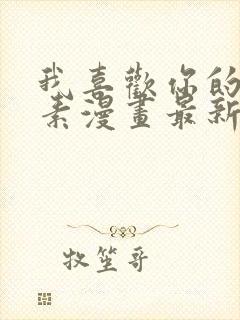 我喜歡你的
素漫畫最新
牧笙哥